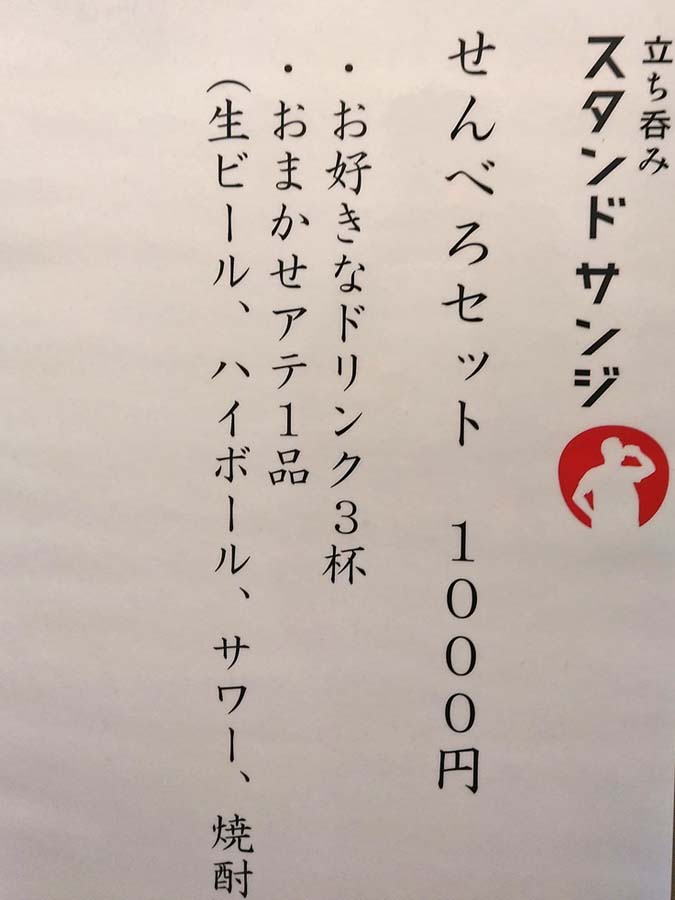 立ち呑み
スタンドサンジ
せんべろセット　１０００円
・お好きなドリンク３杯
・おまかせアテ１品
（生ビール、ハイボール、サワー、焼酎